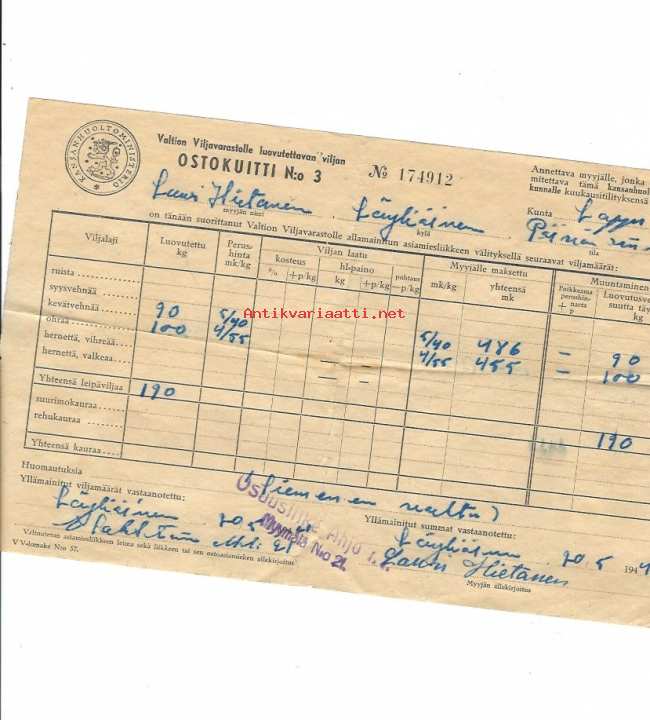 KANSANHUOLTOMINISTERIÖ
Valtion Viljavarastolle luovutettavan viljan
OSTOKUITTI N:o 3
№ 174912
Annettava myyjälle, jonka
mitettava tämä kansanhuol
kunnalle kuukausitilityksensä
Lauri Hietanen Läyliäinen Kunta Loppi
myyjän nimi kylä tila
on tänään suorittanut Valtion Viljavarastolle allamainitun asiamiesliikkeen välityksellä seuraavat viljamäärät:
Viljalaji Luovutettu kg Perus-hinta mk/kg Viljan laatu Myyjälle maksettu Muuntaminen
kosteus hl-paino puhtaus mk/kg yhteensä mk Poikkeama perushin-nasta p Luovutusvel suutta täy kg
% +p/kg kg +p/kg -p/kg
ruista
syysvehnää
kevätvehnää 90 5/40 5/40 486 – 90
ohraa 100 4/55 4/55 455 – 100
hernettä, vihreää
hernettä, valkeaa
Yhteensä leipäviljaa 190 190
suurimokauraa
rehukauraa
Yhteensä kauraa
Huomautuksia (Siemenen
Yllämainitut viljamäärät vastaanotettu: Yllämainitut summat vastaanotettu:
Läyliäinen 20.5 Läyliäinen 20.5 194
Osuusliike Ahjo r.
Myymälä N:o 21.
Lauri Hietanen
Valtuutetun asiamiesliikkeen leima sekä liikkeen tai sen ostoasiamiehen allekirjoitus
Myyjän allekirjoitus
V V-lomake N:o 57.
Antikvariaatti.net